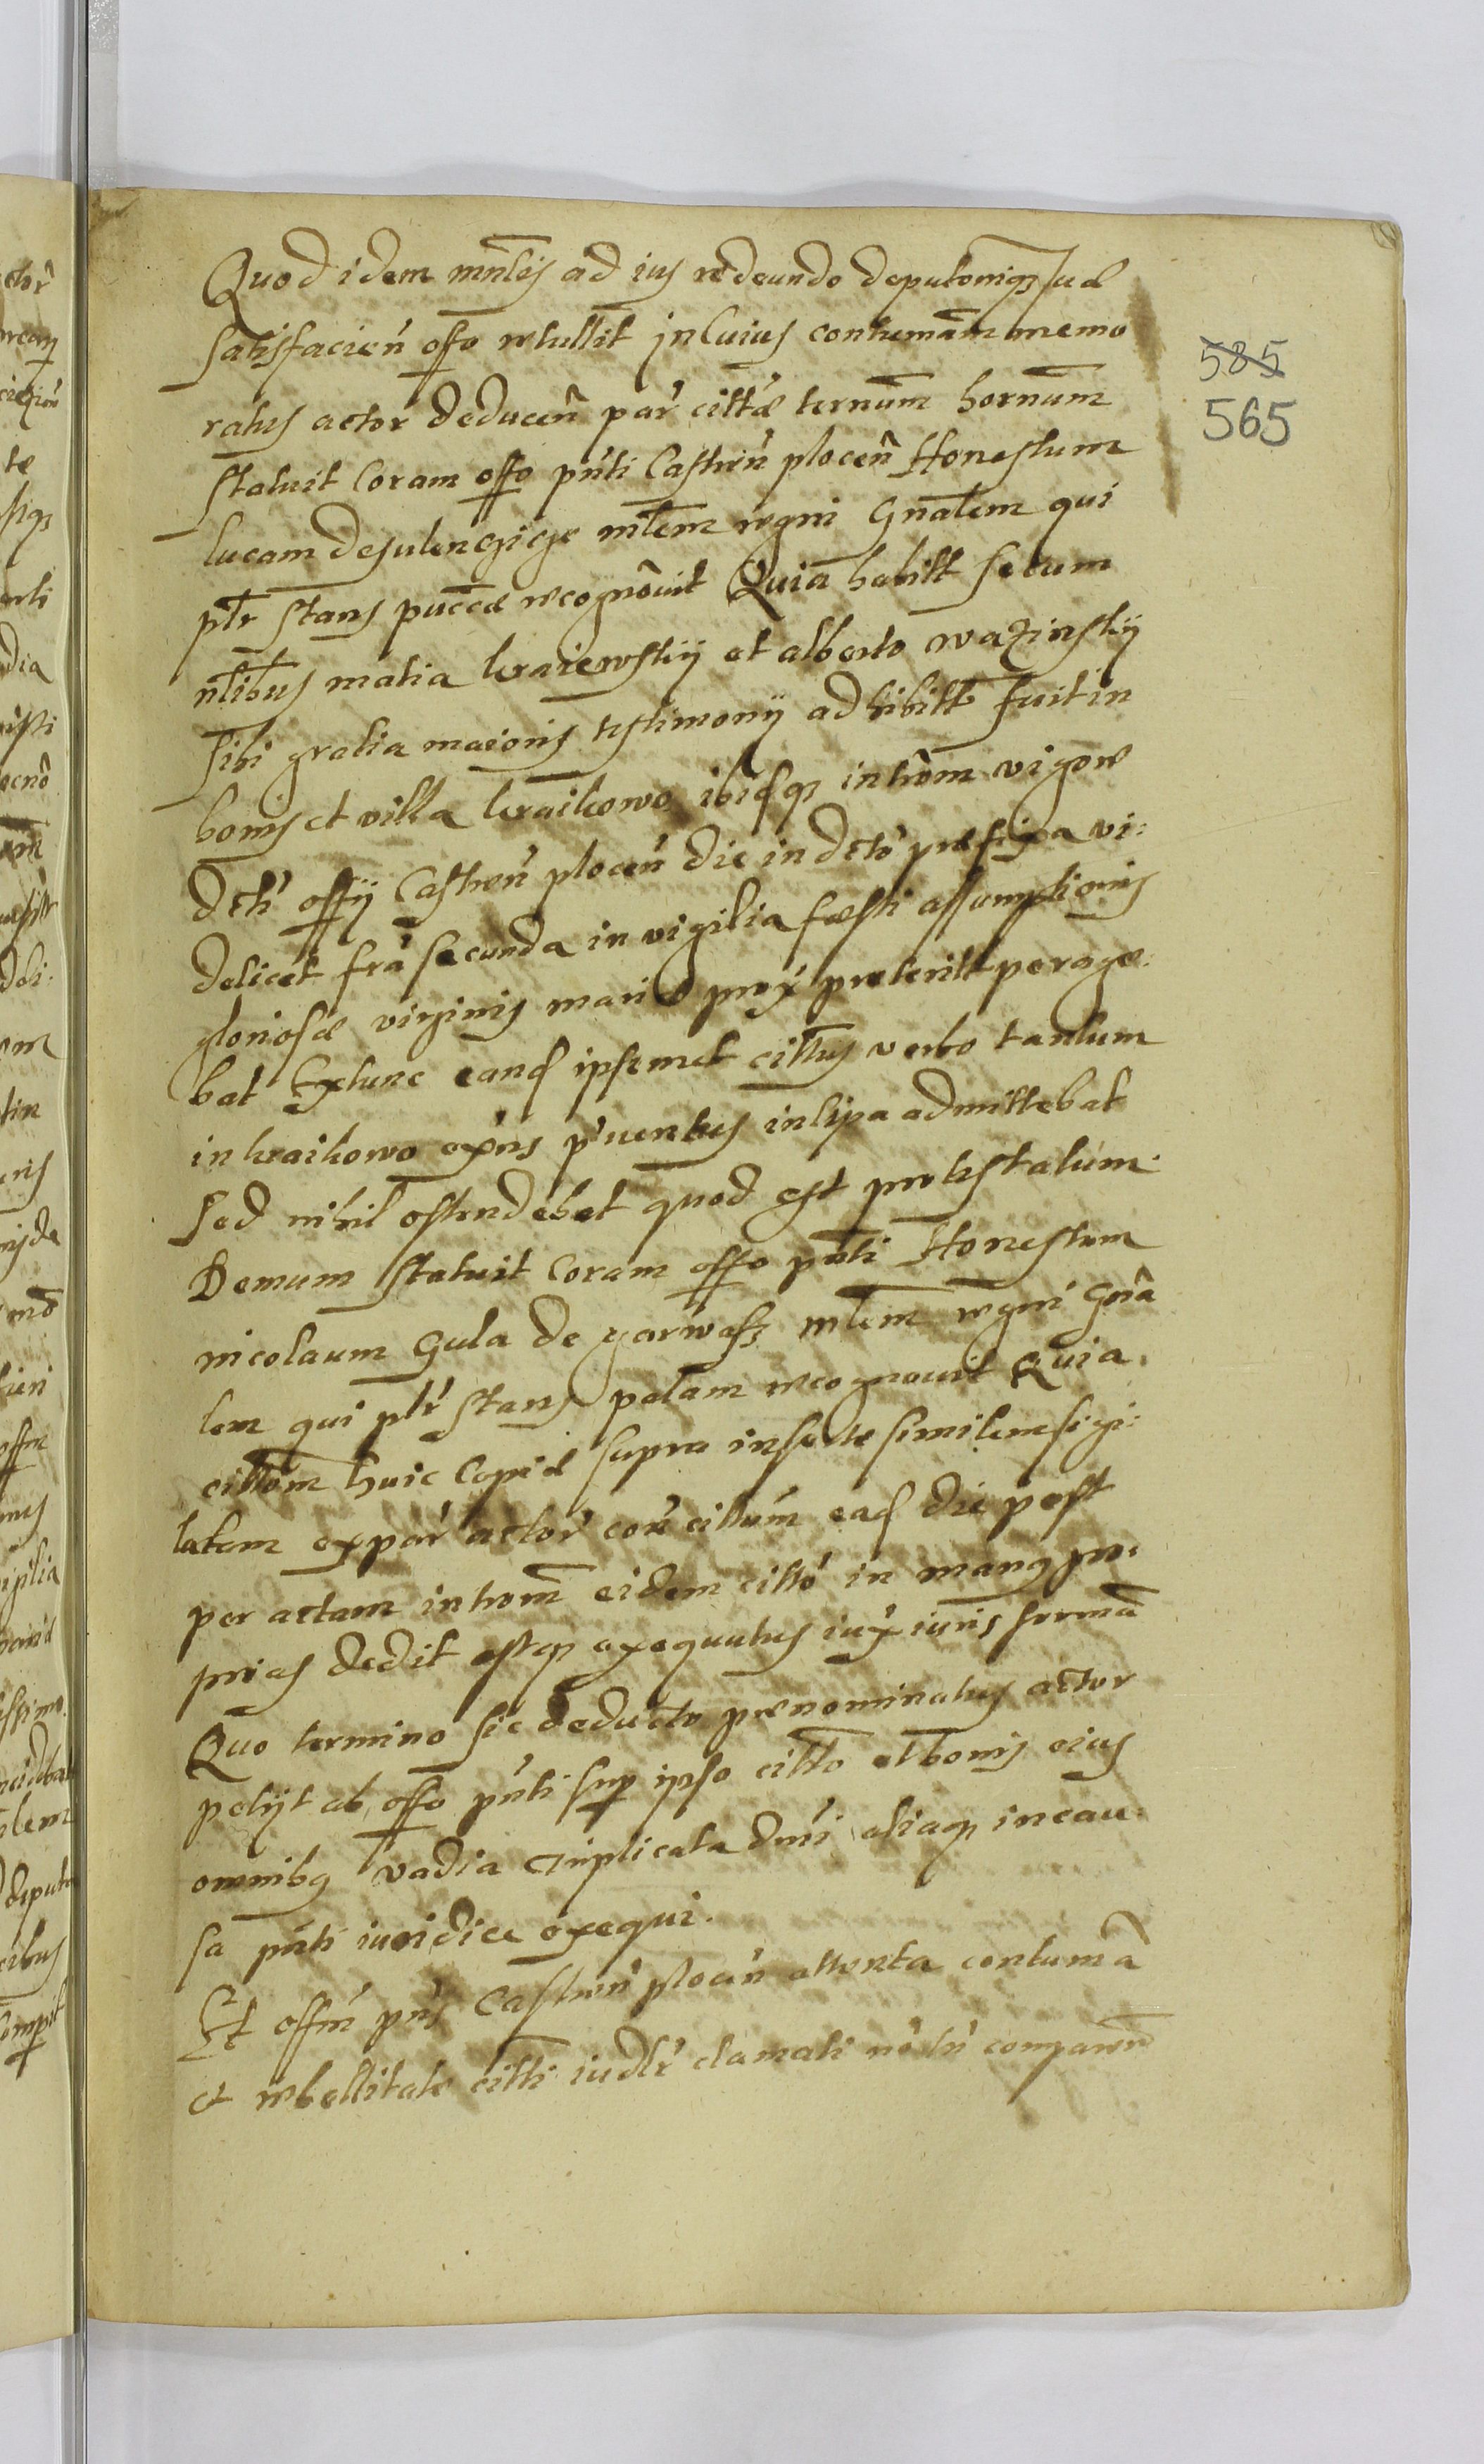 Quod idem mnlis ad ius redeundo deputoniq3 suæ
satisfacien̄ offo retullit in Cuius contumām memo
ratus actor deducen̄ par citt̄æ ternūm hornūm
statuit Coram offo pn̄ti Castren̄ plocen̄ Honestum
lucam desulenczicze mlem regni Gnālem qui
plr stans puccæ recognōuit Quia habitt secum
nlibus matia kraiewskij et alberto wazinskij
sibi gratia maioris testimonij adhibitt fuit in
bonis et villa kraikowo ibidq3 intrōm vigore
dcti offij Castren̄ plocen̄ die in dcto prefixa vi:
delicet frā secunda in vigilia festi assumptionis
gloriosæ virginis mariæ prox preteritt perage:
bat Extunc eand ipsemet cittus verbo tantum
in kraikowo exn̄s pruentus in lipa admittebat
sed nihil ostendebat quod est protestatum.
Demum statuit Coram offo pn̄ti Honestum
nicolaum Gula de yarwass mlem regni Gnā
lem qui plr stans palam recognouit Quia
cittōm huic Copiæ supra insertæ similem sigi:
latam ex par actor con̄ cittūm ead die post
per actam introm eidem citto in manq pro:
prias dedit estq3 exequutus iux iuris formā
Quo termino sic deducto prenominatus actor
petijt ab offo pn̄ti sup ipso citto et bonis eius
omnibq vadia triplicata dn̄i aliaq3 in cau:
sa pn̄ti iuridice exequi.
Et offm pn̄s Castren̄ plocen̄ attenta contumā
et rebellitate citti iudlr clamati nō tn̄ comparen̄
585
565